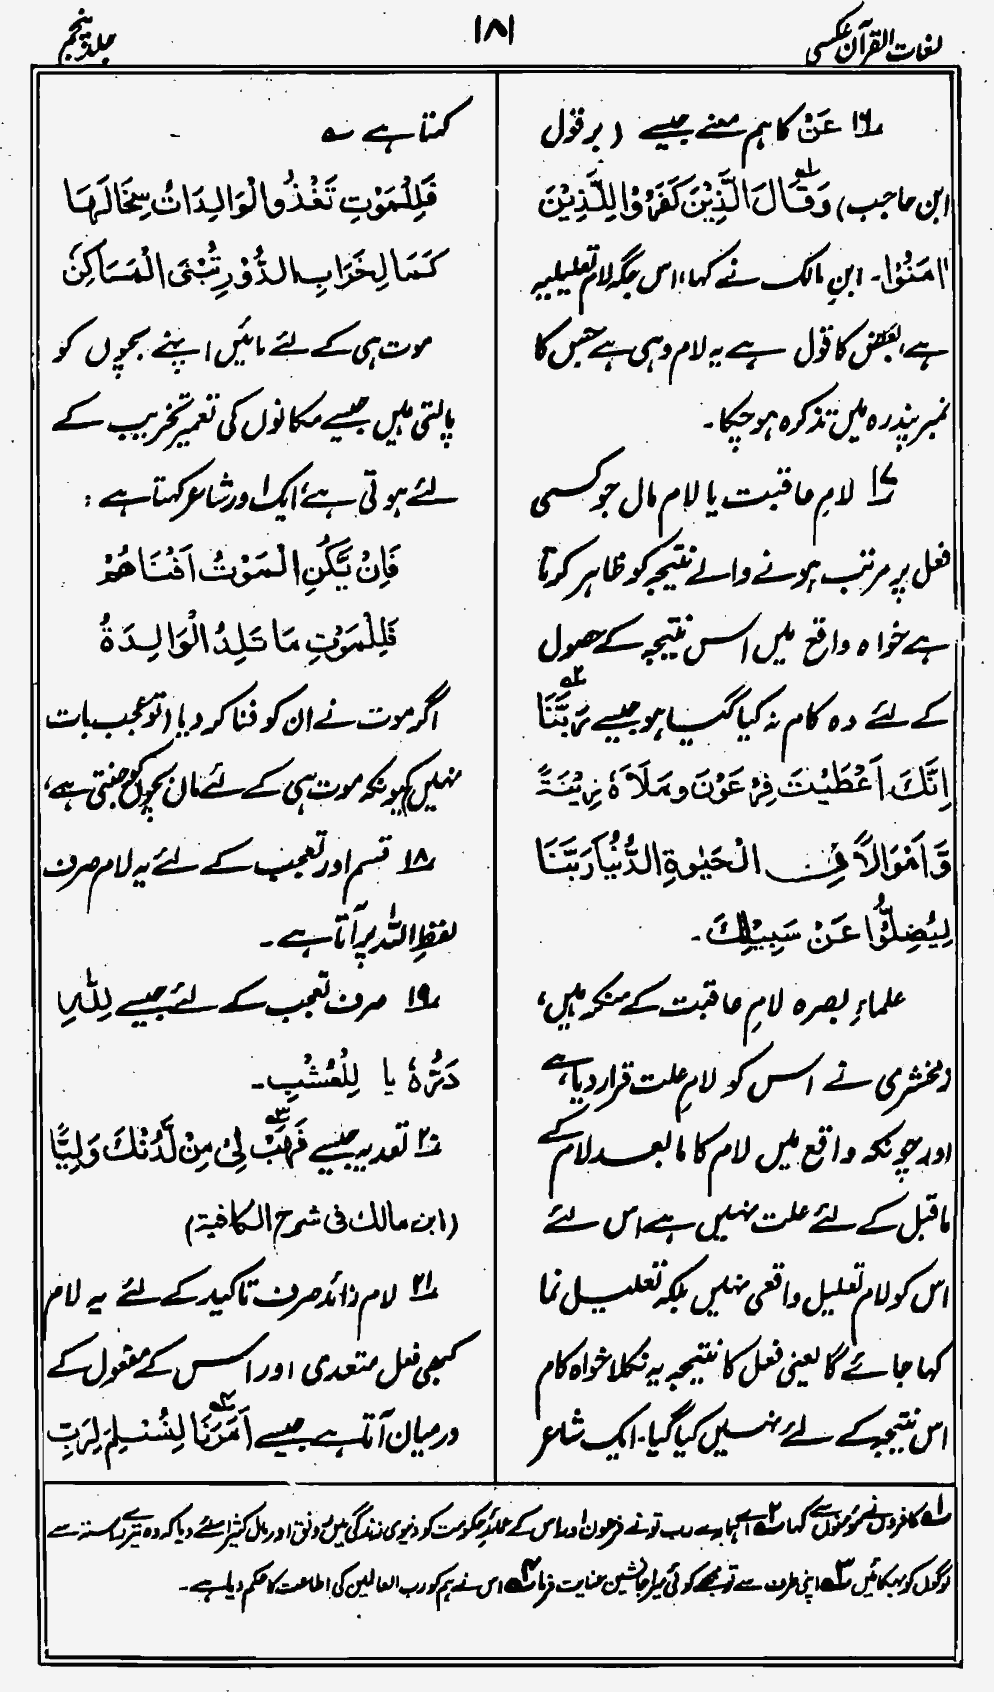 لغات القرآن عکسی
۱۸۱
جلد پنجم
۱۶ عَنْ کا ہم معنے جیسے (بر قول
ابن حاجب) وَقَالَ الَّذِيْنَ كَفَرُوْا لِلَّذِيْنَ
اٰمَنُوْا۔ ابنِ مالک نے کہا، اس جگہ لام تعلیلیہ
ہے، بعض کا قول ہے یہ لام وہی ہے جس کا
نمبر پندرہ میں تذکرہ ہو چکا۔
۱۷ لامِ عاقبت یا لام مال جو کسی
فعل پر مرتب ہونے والے نتیجہ کو ظاہر کرتا
ہے خواہ واقع میں اس نتیجہ کے حصول
کے لئے وہ کام نہ کیا گیا ہو جیسے رَبَّنَا
اِنَّكَ اَعْطَيْتَ فِرْعَوْنَ وَمَلَاَهٗ زِيْنَةً
وَّاَمْوَالًا فِى الْحَيٰوةِ الدُّنْيَا رَبَّنَا
لِيُضِلُّوْا عَنْ سَبِيْلِكَ۔
علماءِ بصرہ لامِ عاقبت کے منکر ہیں،
زمخشری نے اس کو لامِ علت قرار دیا ہے،
اور چونکہ واقع میں لام کا مابعد لام کے
ماقبل کے لئے علت نہیں ہے اس لئے
اس کو لام تعلیل واقعی نہیں بلکہ تعلیل نما
کہا جائے گا یعنی فعل کا نتیجہ یہ نکلا خواہ کام
اس نتیجہ کے لئے نہیں کیا گیا۔ ایک شاعر
کہتا ہے ؎
فَلِلْمَوْتِ تَغْذُو الْوَالِدَاتُ سِخَالَهَا
كَمَا لِخَرَابِ الدُّوْرِ تُبْنَى الْمَسَاكِنُ
موت ہی کے لئے مائیں اپنے بچوں کو
پالتی ہیں جیسے مکانوں کی تعمیر تخریب کے
لئے ہوتی ہے، ایک اور شاعر کہتا ہے :
فَاِنْ يَّكُنِ الْمَوْتُ اَفْنَاهُمْ
فَلِلْمَوْتِ مَا تَلِدُ الْوَالِدَةُ
اگر موت نے ان کو فنا کر دیا (تو عجب بات
نہیں) کیونکہ موت ہی کے لئے ماں بچوں کو جنتی ہے،
۱۸ قسم اور تعجب کے لئے یہ لام صرف
لفظِ اللہ پر آتا ہے۔
۱۹ صرف تعجب کے لئے جیسے لِلّٰهِ
دَرُّهٗ یا لِلْعُشْبِ۔
۲۰ تعدیہ جیسے فَهَبْ لِىْ مِنْ لَّدُنْكَ وَلِيًّا
(ابن مالک فی شرح الکافیۃ)
۲۱ لام زائد صرف تاکید کے لئے یہ لام
کبھی فعل متعدی اور اس کے مفعول کے
درمیان آتا ہے جیسے اُمِرْنَا لِنُسْلِمَ لِرَبِّ
۱ کافروں نے مومنوں سے کہا ۲ اے ہمارے رب تو نے فرعون اور اس کے عملۂ حکومت کو دنیوی زندگی میں رونق اور مال کثیر اسلئے دیا کہ وہ تیرے راستہ سے
لوگوں کو بہکائیں ۳ اپنی طرف سے تو مجھے کوئی میرا جانشین عنایت فرما ۴ اس نے ہم کو رب العالمین کی اطاعت کا حکم دیا ہے۔